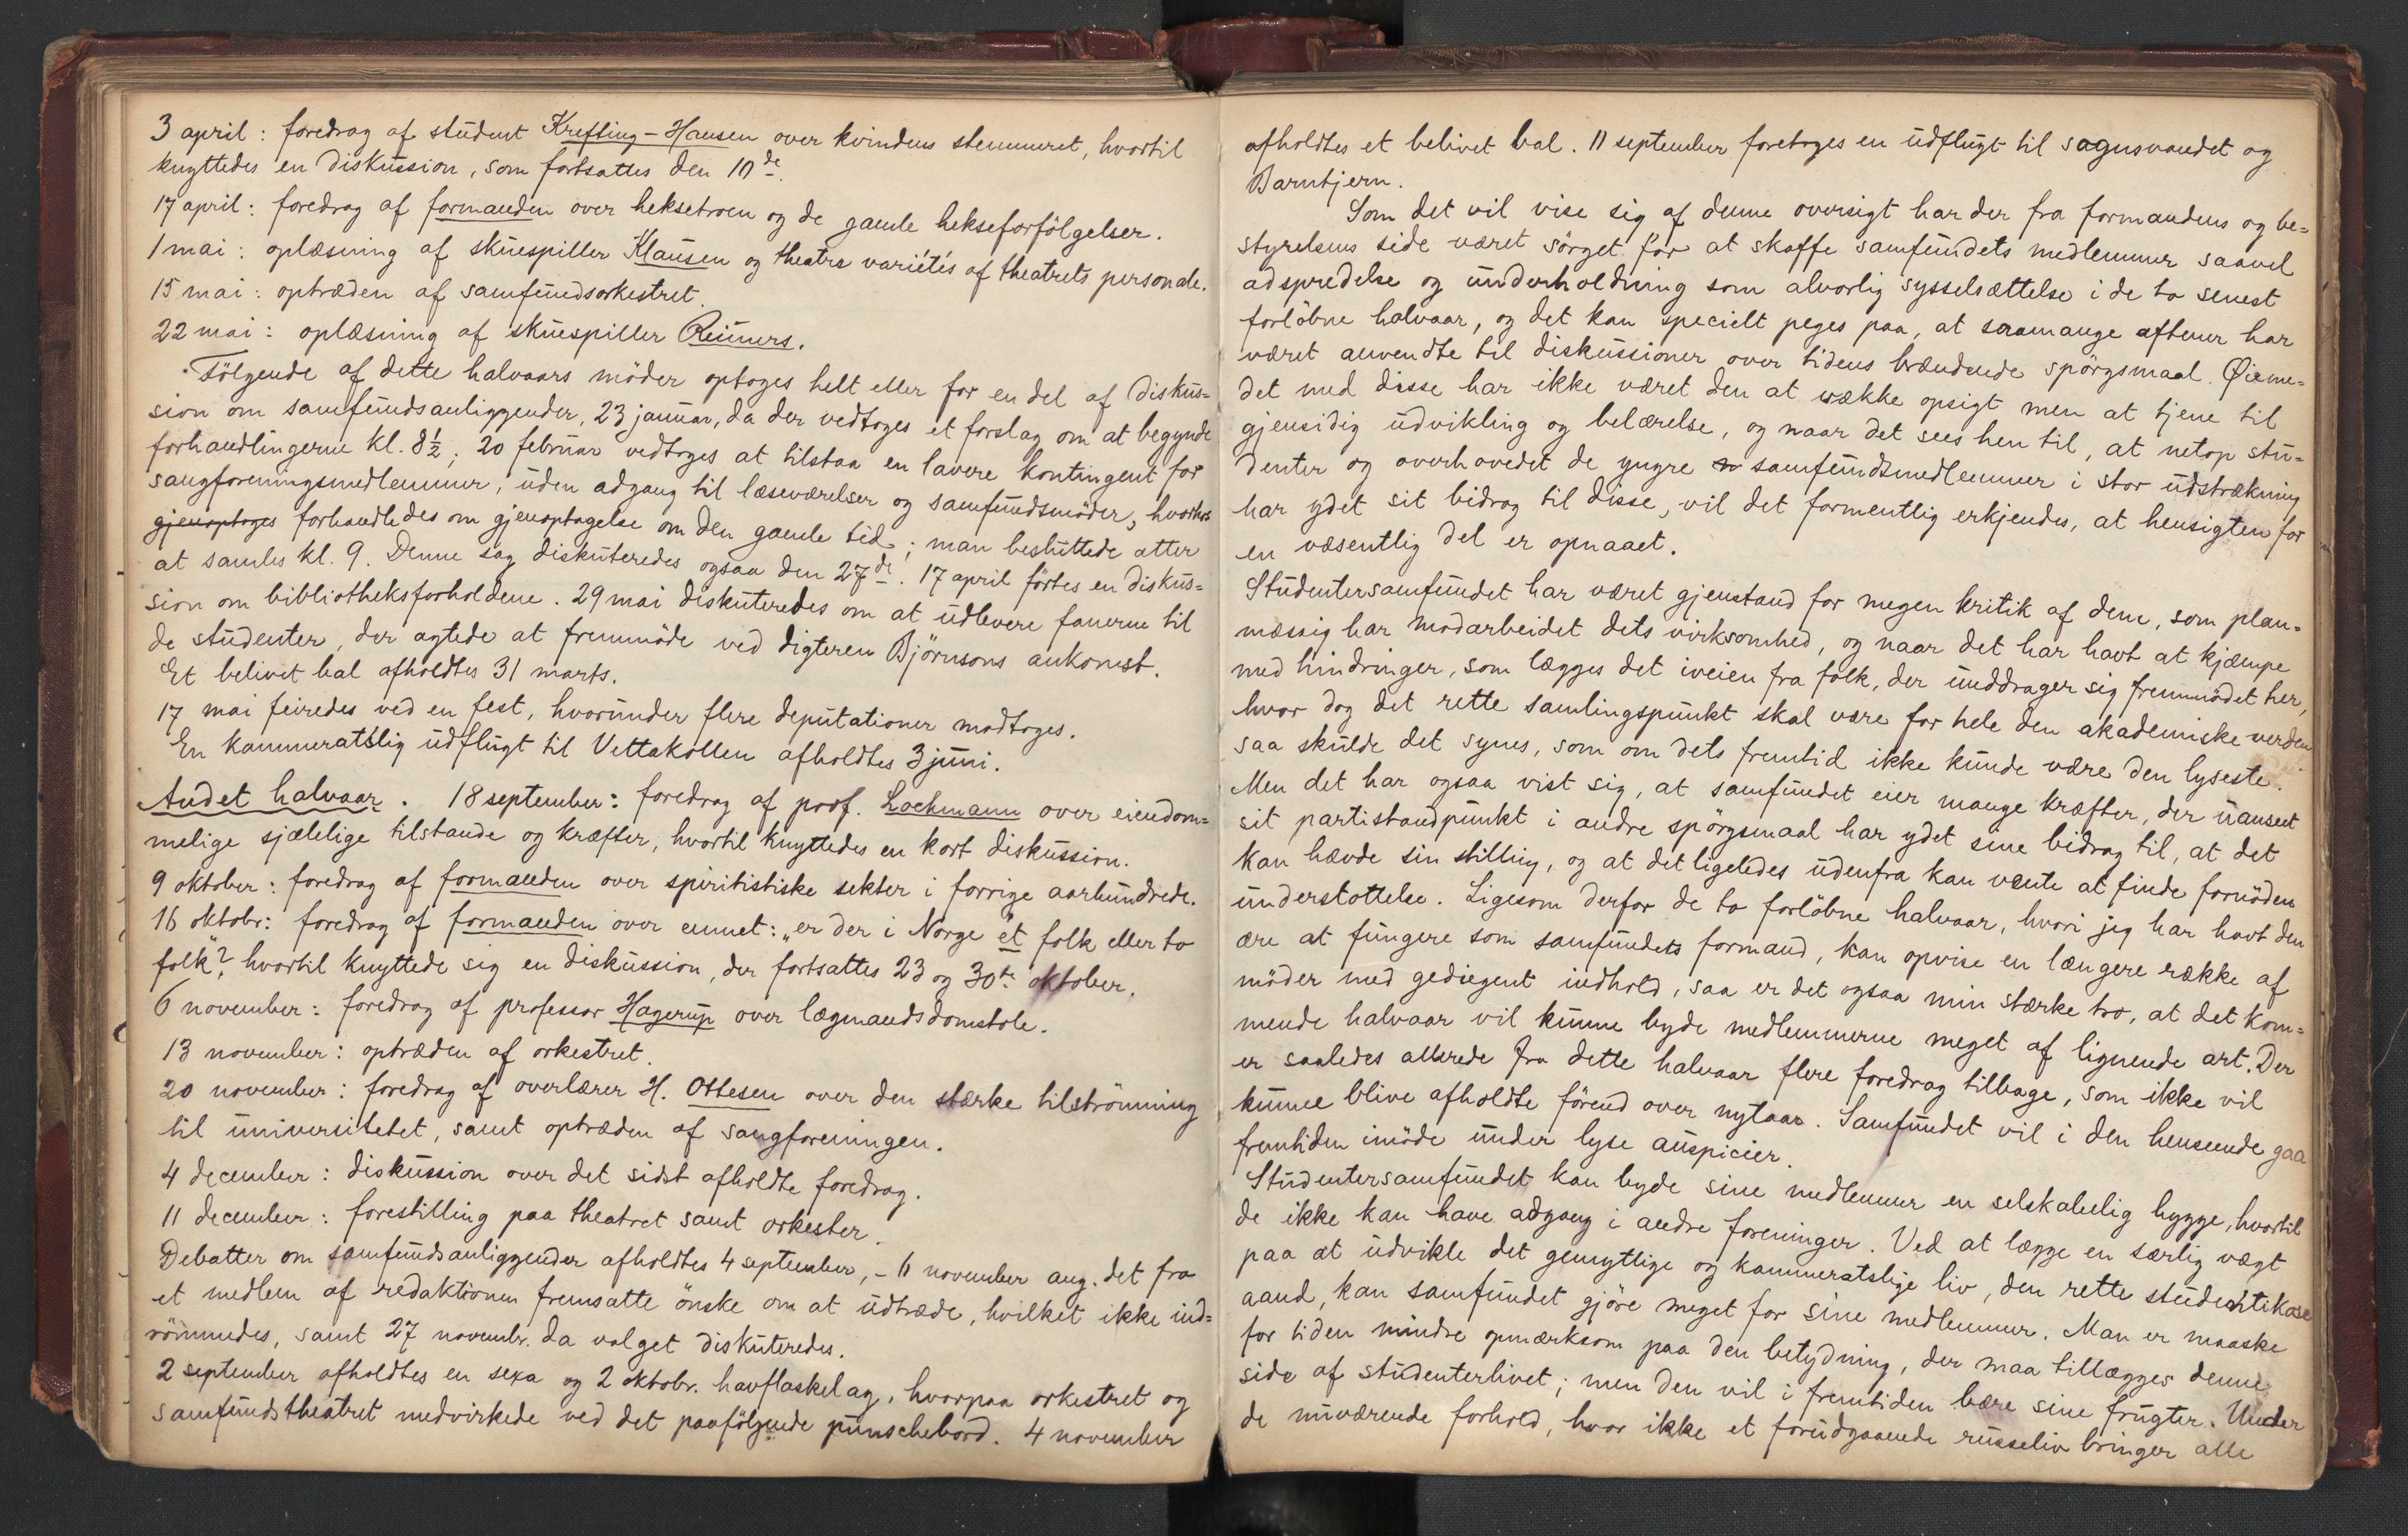 3 april: foredrag af student Krefting-Hansen over kvindens stemmeret, hvortil
knyttedes en diskussion, som fortsattes den 10de.
17 april: foredrag af formanden over heksetroen og de gamle hekseforfölgelser.
1 mai: oplæsning af skuespiller Klausen og theatre variétés af theatrets personale.
15 mai: optræden af samfundsorkestret.
22 mai: oplæsning af skuespiller Reimers.
Fölgende af dette halvaars möder optoges helt eller for en del af diskus=
sion om samfundsanliggender, 23 januar, da der vedtoges et forslag om at begynde
forhandlingerne kl. 8½; 20 februar vedtoges at tilstaa en lavere kontingent for
sangforeningsmedlemmer, uden adgang til læseværelser og samfundsmöder, hvorhos
gjenoptoges forhandledes om gjenoptagelse om den gamle tid; man besluttede atter
at samles kl. 9. Denne sag diskuteredes ogsaa den 27de. 17 april förtes en diskus=
sion om bibliotheksforholdene. 29 mai diskuteredes om at udlevere fanerne til
de studenter, der agtede at fremmöde ved digteren Björnsons ankomst.
Et belivet bal afholdtes 31 marts.
17 mai feiredes ved en fest, hvorunder flere deputationer modtoges.
En kammeratslig udflugt til Vettakollen afholdtes 3 juni.
Andet halvaar. 18 september: foredrag af prof. Lochmann over eiendom=
melige sjælelige tilstande og kræfter, hvortil knyttedes en kort diskussion.
9 oktober: foredrag af formanden over spiritistiske sekter i forrige aarhundrede.
16 oktobr: foredrag af formanden over emnet: „er der i Norge ët folk eller to
folk"? hvortil knyttede sig en diskussion, der fortsattes 23 og 30te oktober.
6 november: foredrag af professor Hagerup over lægmandsdomstole.
13 november: optræden af orkestret.
20 november: foredrag af overlærer H. Ottesen over den stærke tilströmning
til universitetet, samt optræden af sangforeningen.
4 december: diskussion over det sidst afholdte foredrag.
11 december: forestilling paa theatret samt orkester.
Debatter om samfundsanliggender afholdtes 4 september, - 11 november ang. det fra
et medlem af redaktionen fremsatte önske om at udtræde, hvilket ikke ind=
römmedes, samt 27 novembr. da valget diskuteredes.
2 september afholdtes en sexa og 2 oktobr. havflaskelag, hvorpaa orkestret og
samfundstheatret medvirkede ved det paafölgende punschebord. 4 november
afholdtes et belivet bal. 11 september foretoges en udflugt til sognsvandet og
Barntjern.
Som det vil vise sig af denne oversigt har der fra formandens og be=
styrelsens side været sörget for at skaffe samfundets medlemmer saavel
adspredelse og underholdning som alvorlig sysselsættelse i de to senest
forlöbne halvaar, og det kan specielt peges paa, at saamange aftener har
været anvendte til diskussioner over tidens brændende spörgsmaal. Øieme=
det med disse har ikke været den at vække opsigt men at tjene til
gjensidig udvikling og belærelse, og naar det sees hen til, at netop stu=
denter og overhovedet de yngre samfundsmedlemmer i stor udstrækning
har ydet sit bidrag til disse, vil det formentlig erkjendes, at hensigten for
en væsentlig del er opnaaet.
Studentersamfundet har været gjenstand for megen kritik af dem, som plan=
mæssig har modarbeidet dets virksomhed, og naar det har havt at kjæmpe
med hindringer, som lægges det iveien fra folk, der unddrager sig fremmödet her,
hvor dog det rette samlingspunkt skal være for hele den akademiske verden
saa skulde det synes, som om dets fremtid ikke kunde være den lyseste.
Men det har ogsaa vist sig, at samfundet eier mange kræfter, der uanseet
sit partistandpunkt i andre spörgsmaal har ydet sine bidrag til, at det
kan hævde sin stilling, og at det ligeledes udenfra kan vente at finde fornöden
understottelse. Ligesom derfor de to forlöbne halvaar, hvori jeg har havt den
ære at fungere som samfundets formand, kan opvise en længere række af
möder med gediegent indhold, saa er det ogsaa min stærke tro, at det kom=
mende halvaar vil kunne byde medlemmerne meget af lignende art. Der
er saaledes allerede fra dette halvaar flere foredrag tilbage, som ikke vil
kunne blive afholdte förend over nytaar. Samfundet vil i den henseende gaa
fremtiden imöde under lyse auspicier.
Studentersamfundet kan byde sine medlemmer en selskabelig hygge, hvortil
de ikke kan have adgang i andre foreninger. Ved at lægge en særlig vægt
paa at udvikle det gemyttlige og kammeratslige liv, den rette studentikose
aand, kan samfundet gjöre meget for sine medlemmer. Man er maaske
for tiden mindre opmærksom paa den betydning, der maa tillægges denne
side af studenterlivet; men den vil i fremtiden bære sine frugter. Under
de nuværende forhold, hvor ikke et forudgaaende russeliv bringer alle